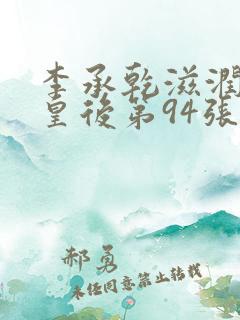 李承乾滋潤
皇後第94張
郝勇
未经同意禁止转载